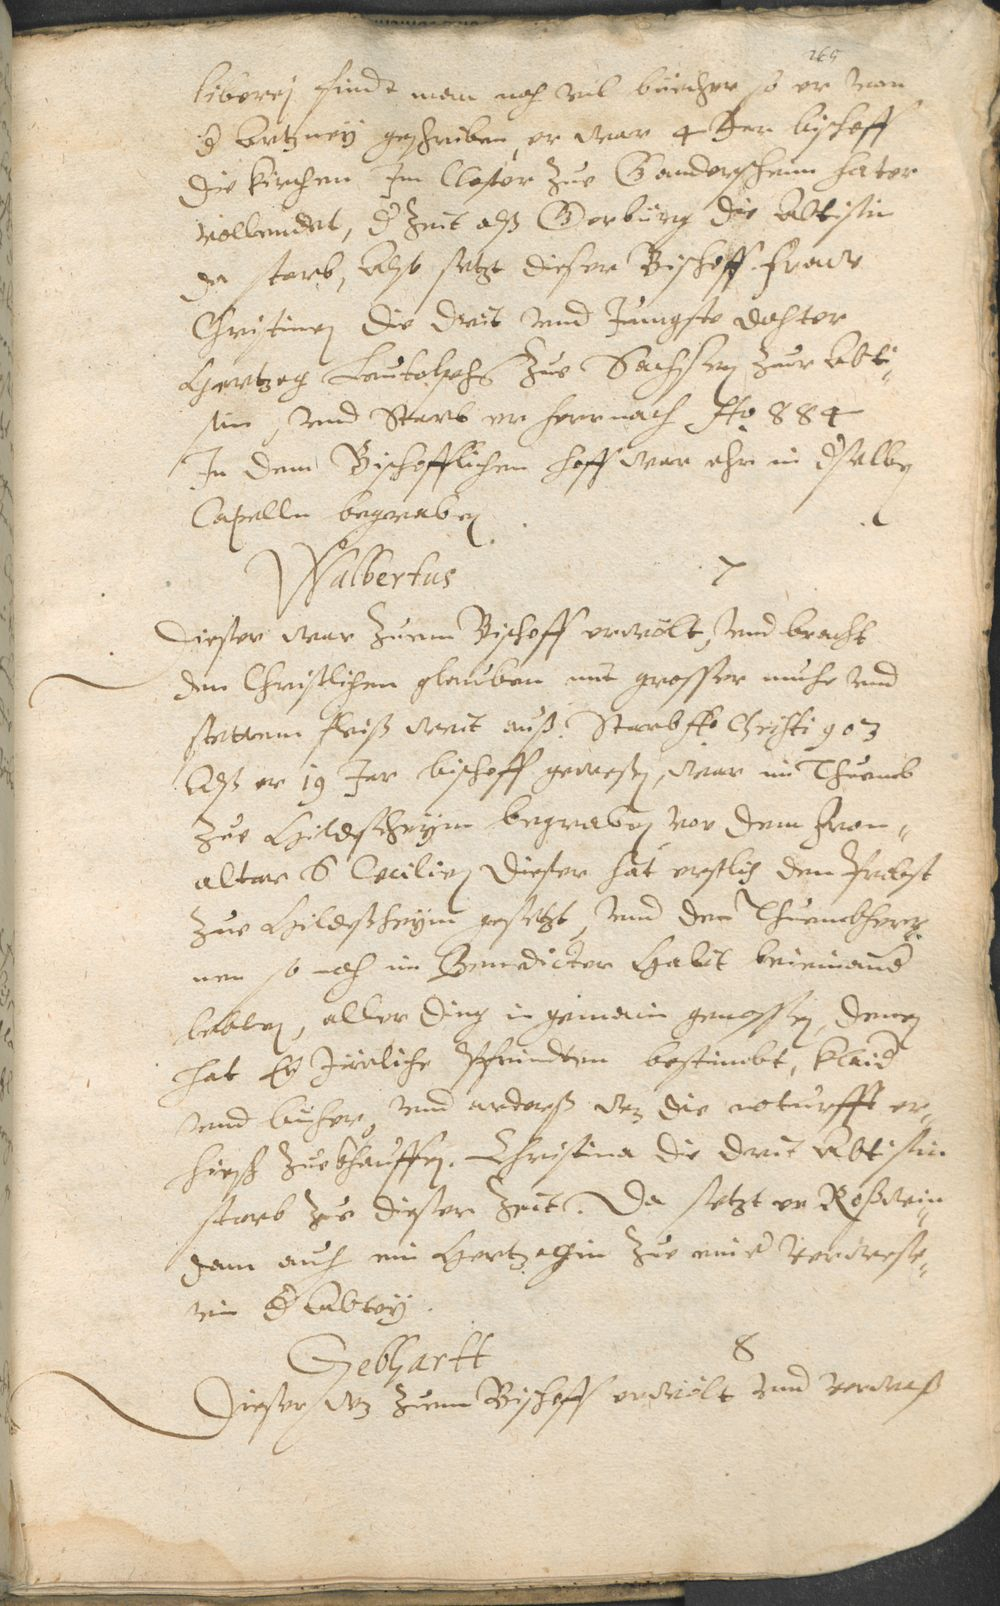 265
liberej findt man noch vil büecher so er von
d Artzney geschriben, er war 4 Jar bischoff
die kirchen Im Closter zue Gandersheim hat er
vollendet, d Zeit alß Gerburg die Abtisin
da starb, Alß setzt dieser Bischoff Fraw
Christinen die drit vnd Jungste dochter
Hertzog Leutolphs zue Sachsen zur Abti„
sin, vnd Starb er hernach Ao 884
In dem Bischofflichen hoff war ehr in dselben
Capelln begraben.
Walbertus 7
Dieser war zuem Bischoff erwölt, vnd bracht
den Christlichen glauben mit grosser muhe vnd
stettem fleiß weit auß. Starb Ao Christi 903
Alß er 19 Jar bischoff gewesen, war im Thuemb
zue Hildesheym begraben vor dem Fron„
altar S Cecilien Dieser hat erstlich den Probst
zue Hildesheym gesetzt, vnd den Thuembherr„
nen so noch im Benedicter Habit beieinand
lebten, aller ding in gemain genossen, denen
hat Er Järliche Pfrundten bestimbt, klaid
vnd bücher, vnd anderß wz die noturfft er„
hiesch zuekhauffen. Christina die drit Abtissin
starb zue dieser Zeit. Da setzt er Roßwein„
dam auch ein Hertzogin zue einer verwese„
rin d Abtey.
Gebhartt 8
Dieser wz zuem Bischoff erwölt vnd verwaß